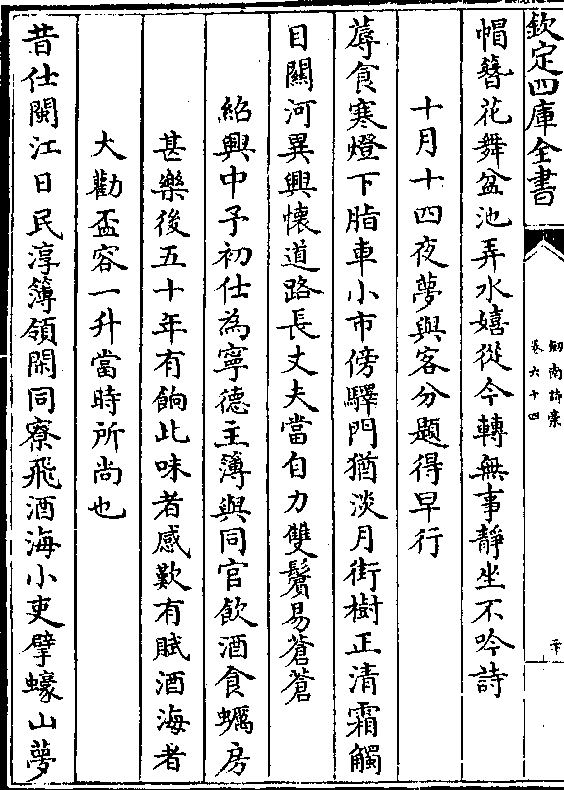 欽定四庫全書
劒南詩稾
卷六十四
帽簪花舞盆池弄水嬉從今轉無事靜坐不吟詩
十月十四夜夢與客分題得早行
蓐食寒燈下脂車小市傍驛門猶淡月街樹正清霜觸
目關河異興懷道路長丈夫當自力雙鬢易蒼蒼
紹興中予初仕為寧德主簿與同官飲酒食蠣房
甚樂後五十年有餉此味者感歎有賦酒海者
大勸盃容一升當時所尚也
昔仕閩江日民淳簿領閑同寮飛酒海小吏擘蠔山夢